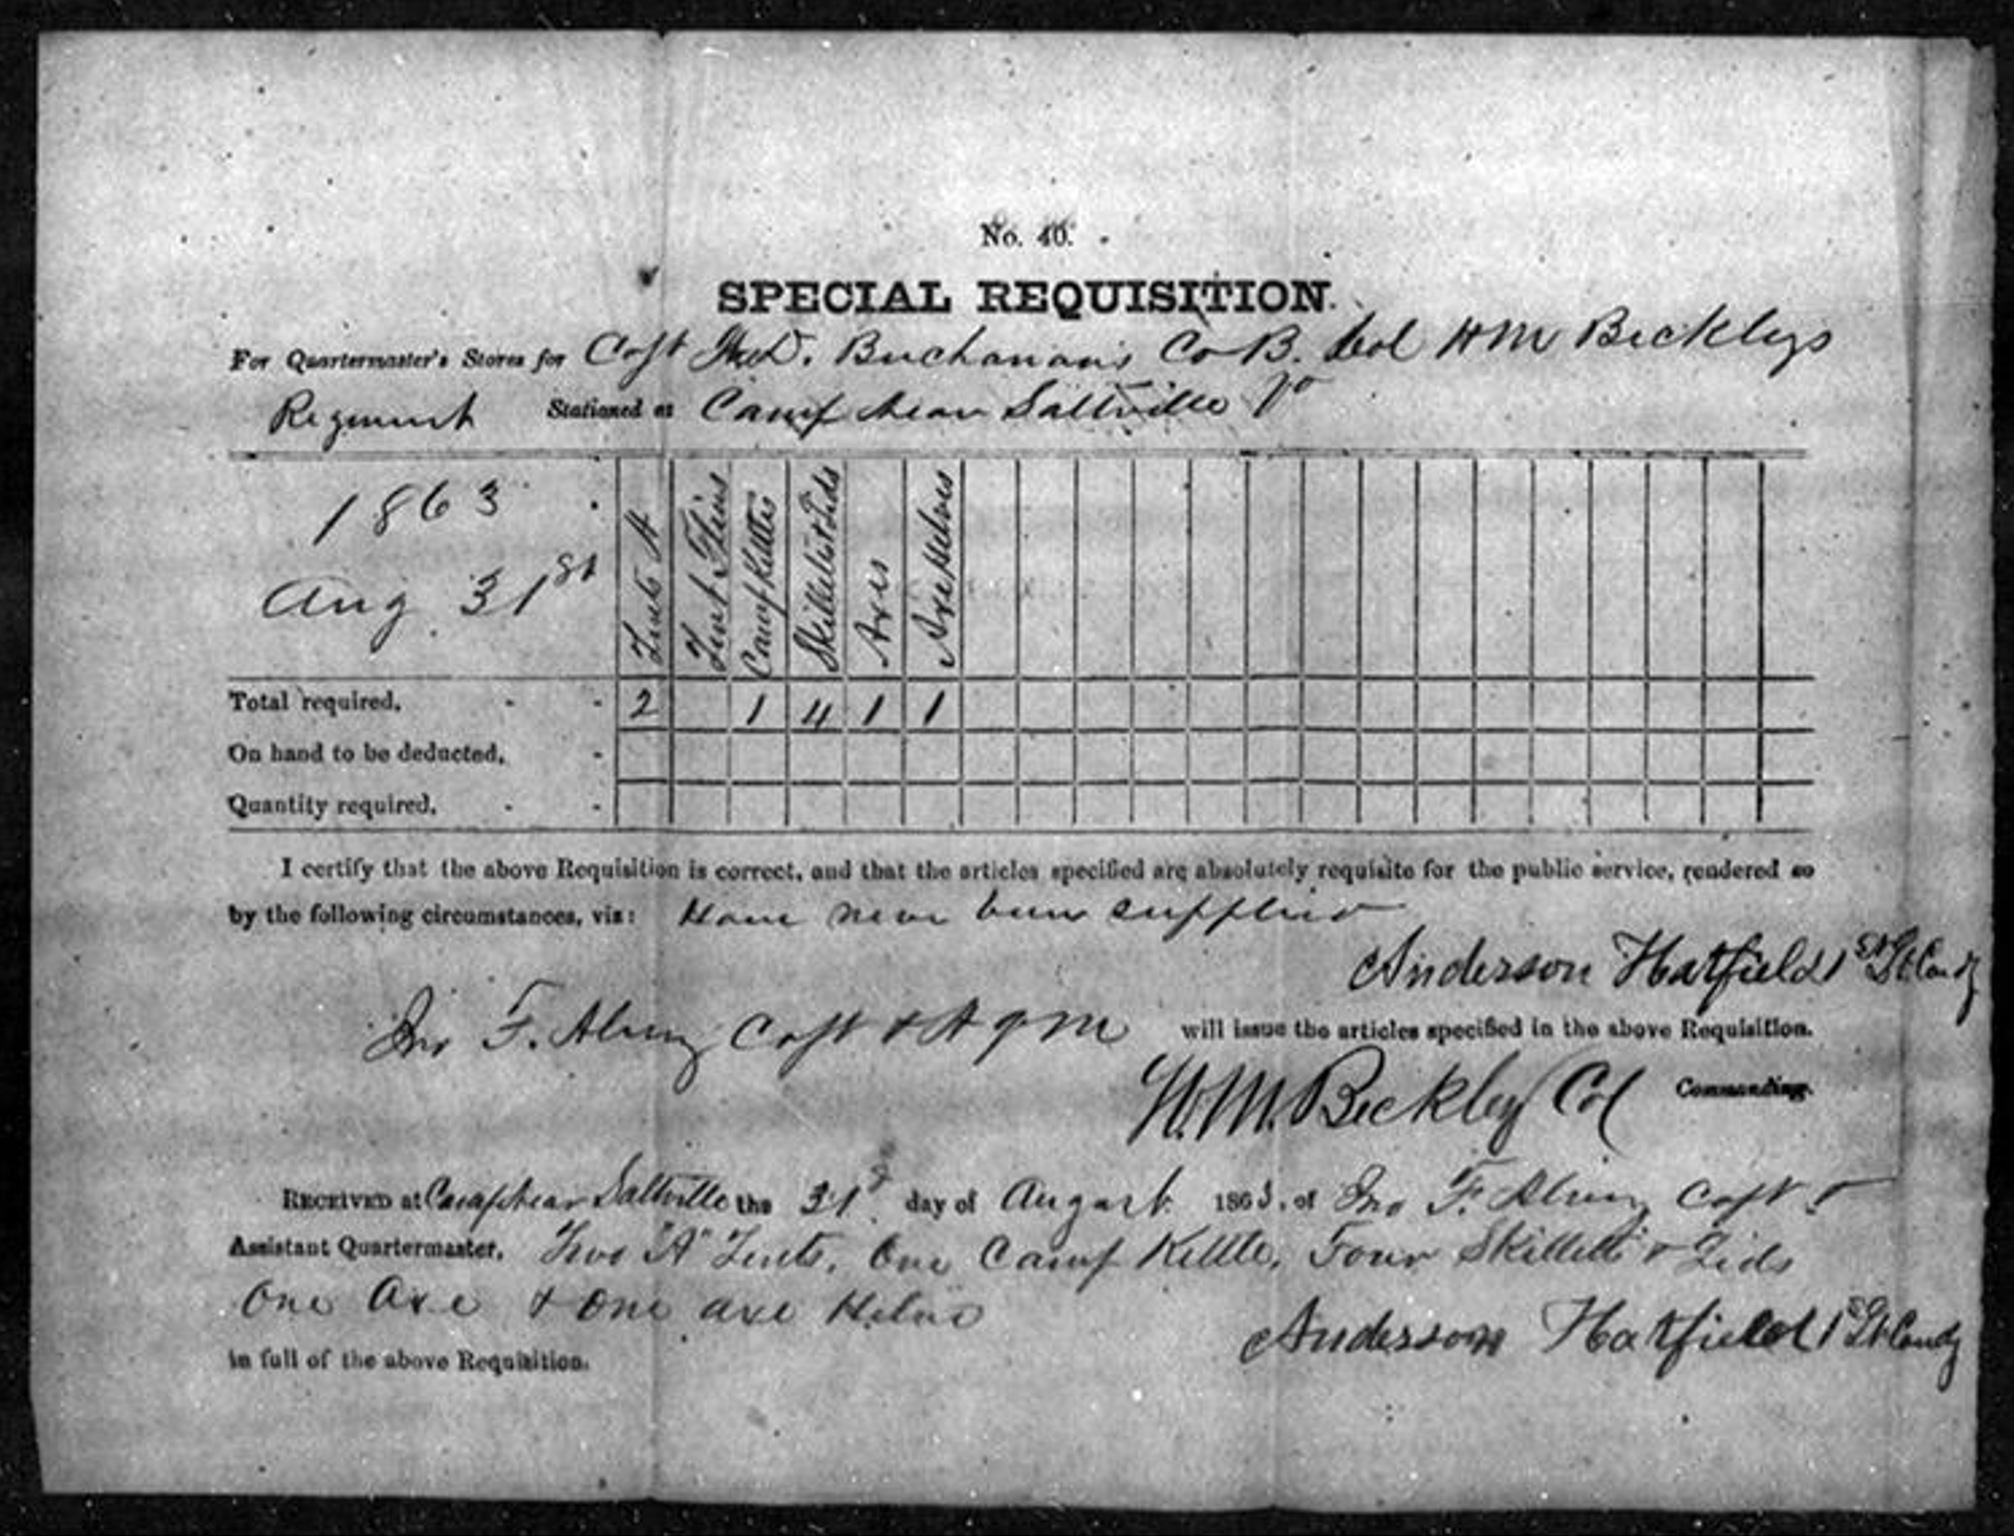 No. 40.
SPECIAL REQUISITION.
For Quartermaster's Stores for Capt D. Buchanan's Co B. Col H M Beckleys
Regiment Stationed at Camp near Saltville Va
1863
Aug 31st
Tents A
Tent Flies
Camp Kettles
Skillets & Lids
Axes
Axe Helves
Total required. - - 2 1 4 1 1
On hand to be deducted. -
Quantity required. - -
I certify that the above Requisition is correct, and that the articles specified are absolutely requisite for the public service, rendered so
by the following circumstances, viz: Have never been supplied
Anderson Hatfield 1st Lt
Jno F. Capt & A Q M will issue the articles specified in the above Requisition.
W. M. Beckley Col Commanding.
RECEIVED at Camp near Saltville the 31st day of August 1863, of Jno F. Capt &
Assistant Quartermaster. Two "A" Tents, One Camp Kettle, Four Skillets & Lids
One Axe & One axe Helve
Anderson Hatfield 1st Lt
in full of the above Requisition.